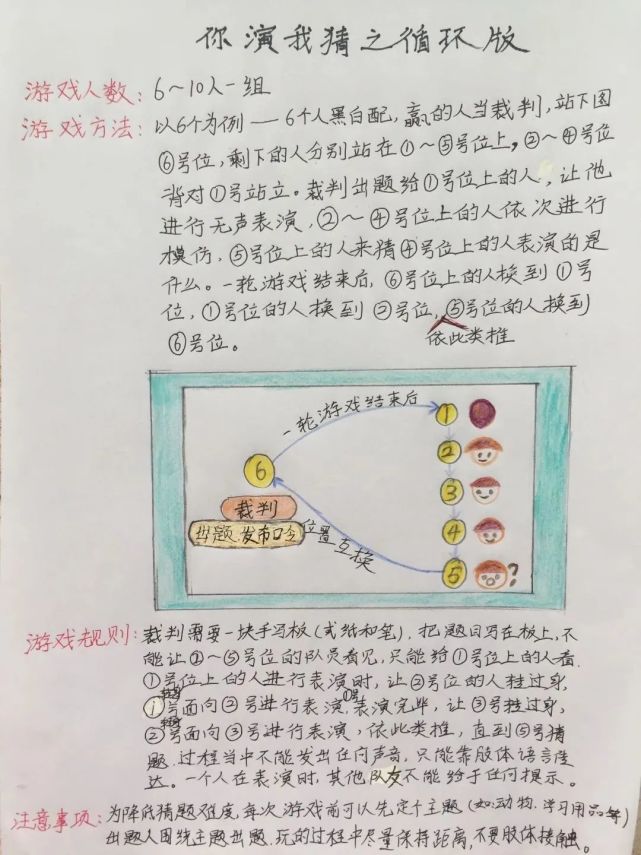 你演我猜之循环版
游戏人数：6～10人一组
游戏方法：以6个为例——6个人黑白配，赢的人当裁判，站下图
⑥号位，剩下的人分别站在①～⑤号位上，②～④号位
背对①号站立。裁判出题给①号位上的人，让他
进行无声表演，②～④号位上的人依次进行
模仿，⑤号位上的人来猜④号位上的人表演的是
什么。一轮游戏结束后，⑥号位上的人换到①号
位，①号位的人换到②号位，⑤号位的人换到
依此类推
⑥号位。
一轮游戏结束后
1
2
6
3
裁判
出题、发布口令
4
位置互换
5
?
游戏规则：裁判需要一块手写板(或纸和笔)，把题目写在板上，不
能让②～⑤号位的队员看见，只能给①号位上的人看。
①号位上的人进行表演时，让②号位的人转过身，
①号面向②号进行表演，①号表演完毕，让③号转过身，
②号面向③号进行表演，依此类推，直到⑤号猜
题。过程当中不能发出任何声音，只能靠肢体语言传
达。一个人在表演时，其他队友不能给于任何提示。
注意事项：为降低猜题难度，每次游戏前可以先定个主题(如：动物、学习用品等)
出题人围绕主题出题，玩的过程中尽量保持距离，不要肢体接触。